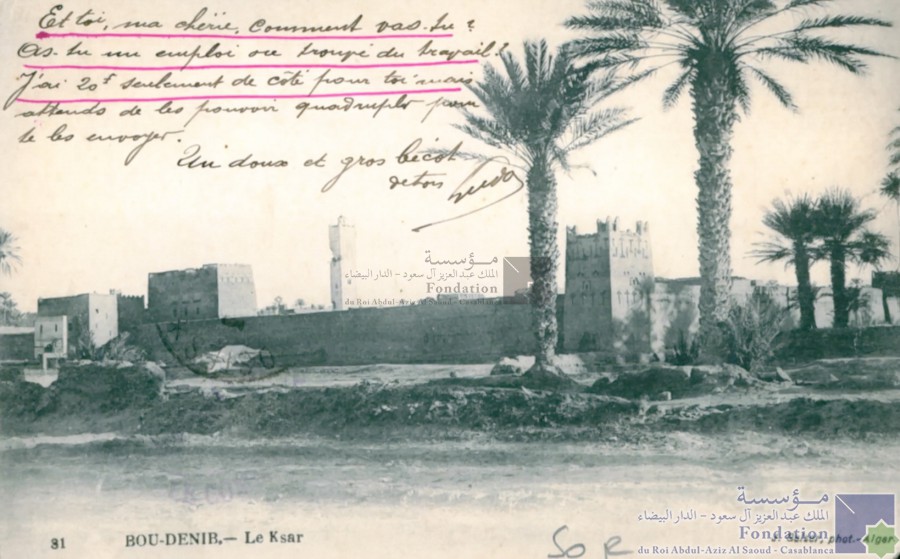 Et toi, ma chérie, comment vas-tu?
As-tu un emploi ou trouvé du travail?
J'ai 20f seulement de côté pour toi mais
attends de les pouvoir quadrupler pour
te les envoyer.
Un doux et gros bécot
de ton
مؤسسة
الملك عبدالعزيز آل سعود - الدار البيضاء
Fondation
du Roi Abdul-Aziz Al Saoud - Casablanca
81 BOU-DENIB. — Le Ksar
phot. - Alger
50 R
مؤسسة
الملك عبدالعزيز آل سعود - الدار البيضاء
Fondation
du Roi Abdul-Aziz Al Saoud - Casablanca